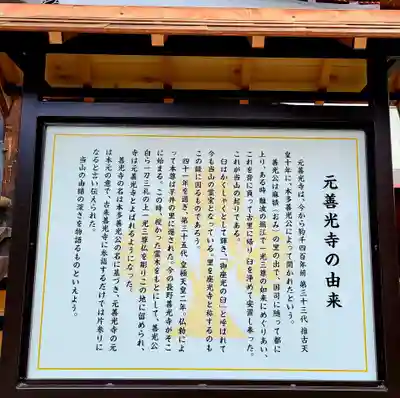 元善光寺の由来
元善光寺は、今から約千四百年前 第三十三代 推古天
皇十年に、本多善光公によって開かれたという。
善光公は麻績（おみ）の里の出で、国司に随って都に
上り、ある時、難波の堀江で一光三尊の如来にめぐりあい、
これを背に負って古里に帰り 臼を浄めて安置し奉った。
これが当山の起りである。
臼はかくしゃくとして輝き「御座光の臼」と呼ばれて
今も当山の霊宝となっている。里を座光寺と称するのも
この縁に因るものである。
四十一年を過ぎ、第三十五代 皇極天皇二年。仏勅によ
って本尊は芋井の里に遷された。今の長野善光寺がそこ
に始まる。この時、授かった霊木をもとにして、善光公
自ら一刀三礼の上一光三尊仏を彫りこの地に留められ、
寺は元善光寺とよばれるようになった。
善光寺の名は本多善光公の名に基づき、元善光寺の元
は本元の意で、古来善光寺に参詣するだけでは片参りに
なると言い伝えられた。
当山の由緒の深さを物語るものといえよう。